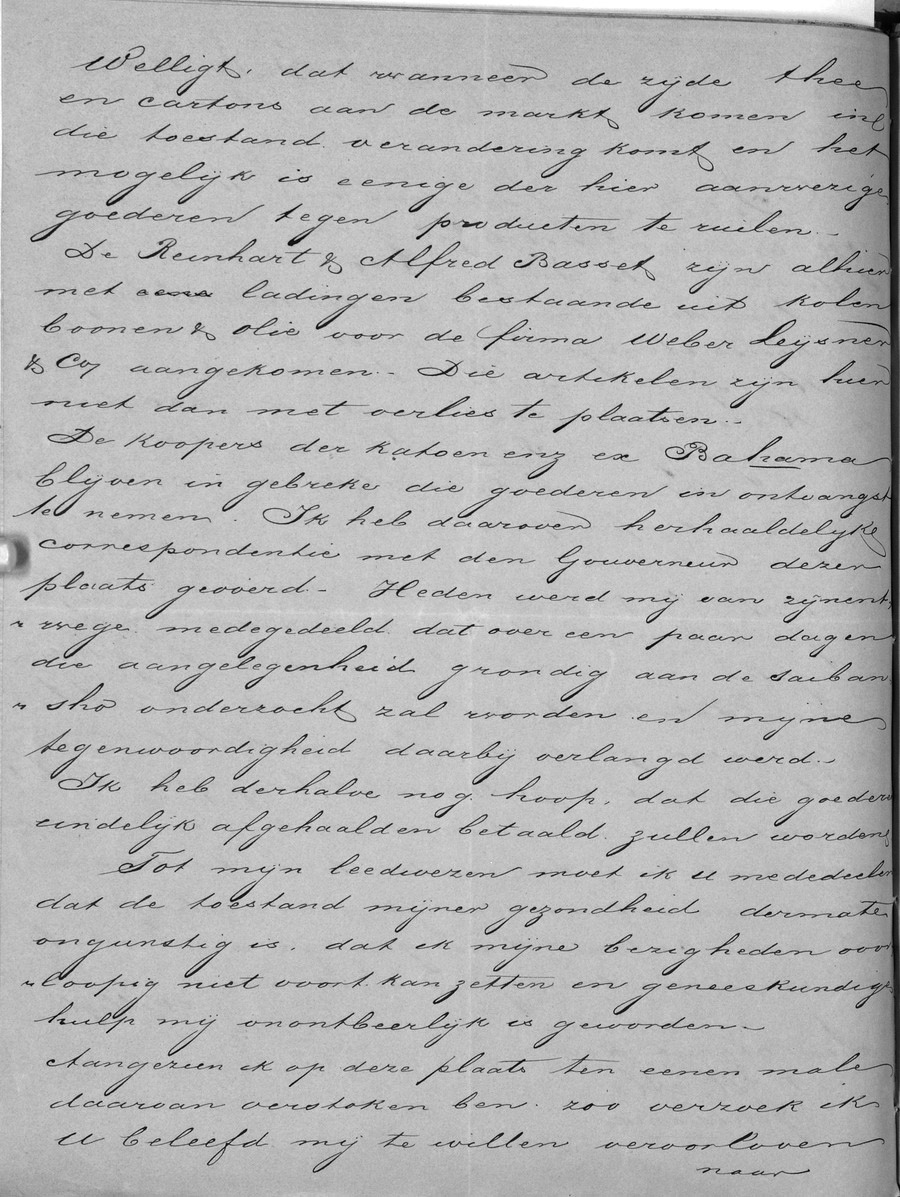 Welligt, dat wanneer de zyde thee
en cartons aan de markt komen in
die toestand verandering komt en het
mogelijk is eenige der hier aanwezige
goederen tegen producten te ruilen.-
De Reinhart & Alfred Basset zijn alhier
met eene ladingen bestaande uit kolen
boonen & olie voor de firma Weber Leijsner
& Co aangekomen.- Die artikelen zijn hier
niet dan met verlies te plaatsen.-
De koopers der katoen enz ex Bahama
blijven in gebreke die goederen in ontvangst
te nemen. Ik heb daarover herhaaldelyke
correspondentie met den Gouverneur dezer
plaats gevoerd.- Heden werd mij van zijnent
" wege medegedeeld dat over een paar dagen
die aangelegenheid grondig aan de saiban
" sho onderzocht zal worden en mijne
tegenwoordigheid daarbij verlangd werd.-
Ik heb derhalve nog hoop, dat die goederen
eindelijk afgehaald en betaald zullen worden
Tot mijn leedwezen moet ik u mededeelen
dat de toestand mijner gezondheid dermate
ongunstig is, dat ik mijne bezigheden voor
" loopig niet voort kan zetten en geneeskundige
hulp mij onontbeerlijk is geworden-
Aangezien ik op deze plaats ten eenen male
daarvan verstoken ben. zoo verzoek ik
U beleefd mij te willen veroorloven
naar